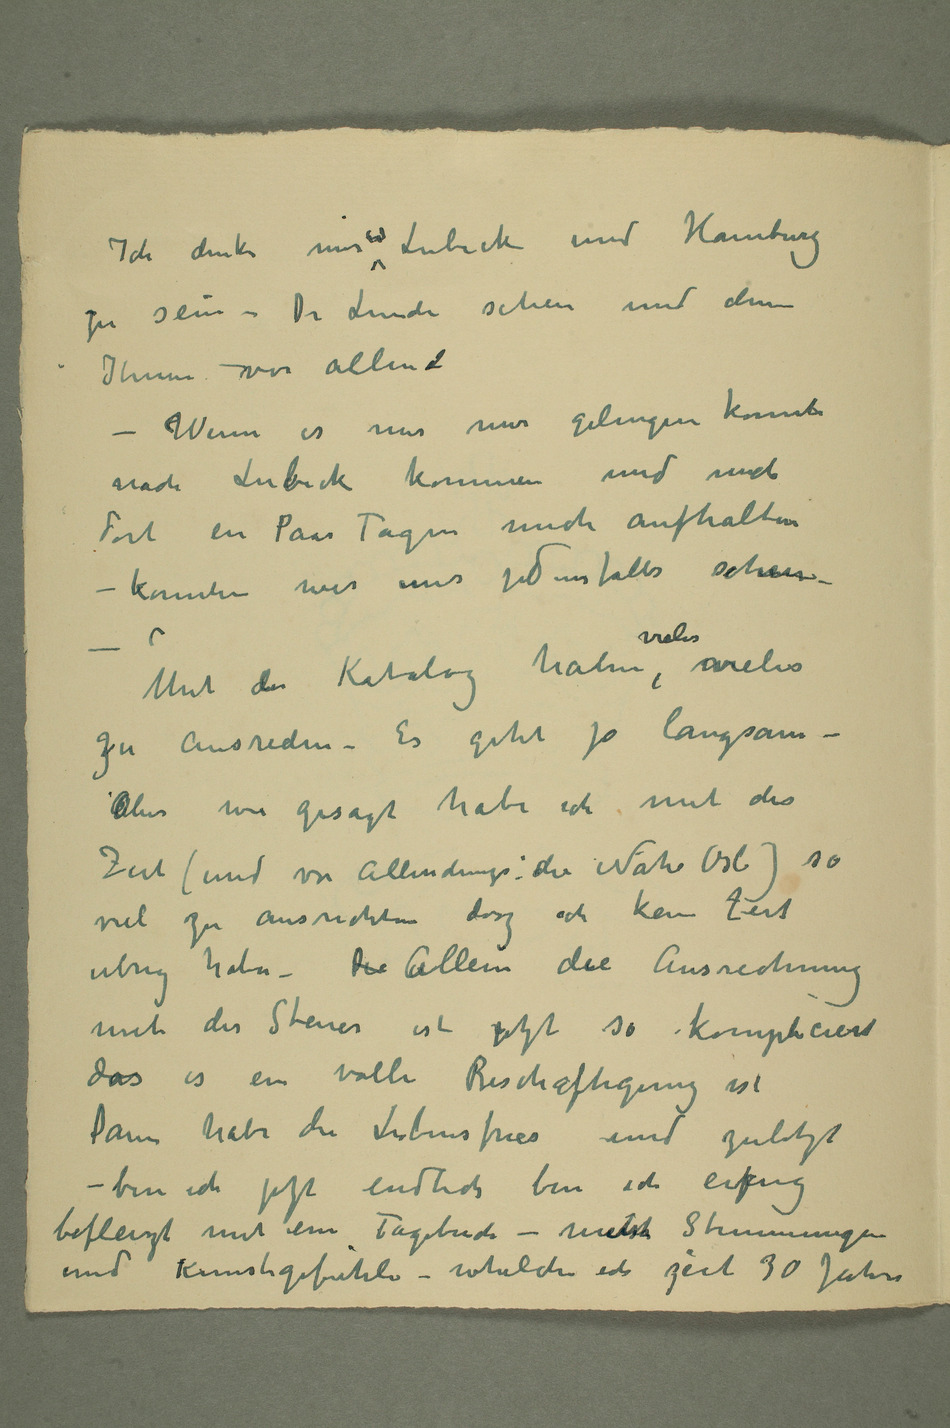 Ich denke mir in Lübeck und Hamburg
zu sein – Dr Linde sehen und dann
Ihnen – vor allend
– Wenn es mir nur gelingen konnte
nach Lubeck kommen und mich
dort ein Paar Tagen mich aufhalten
– konnten wir uns jedenfalls sehen –
–
Mit der Katalog haben, vieles vieles
zu ausreden – Es geht jo langsam –
Aber wie gesagt habe ich mit der
Zeit (und vor Allendings: die Nähe Osl) so
viel zu ausrichten dasz ich kein Zeit
ubrig habe – Die Allein die Ausrechnung
mit der Steuer ist jetzt so kompliciert
das es ein volle Beschäftigung ist
Dann habe die Lebensfries und zuletzt
– bin ich jetzt endlich bin ich eifrig
befleizt mit ein Tagebuch – meist Stimmungen
und Kunstgefühle – whelche ich zeit 30 Jahre